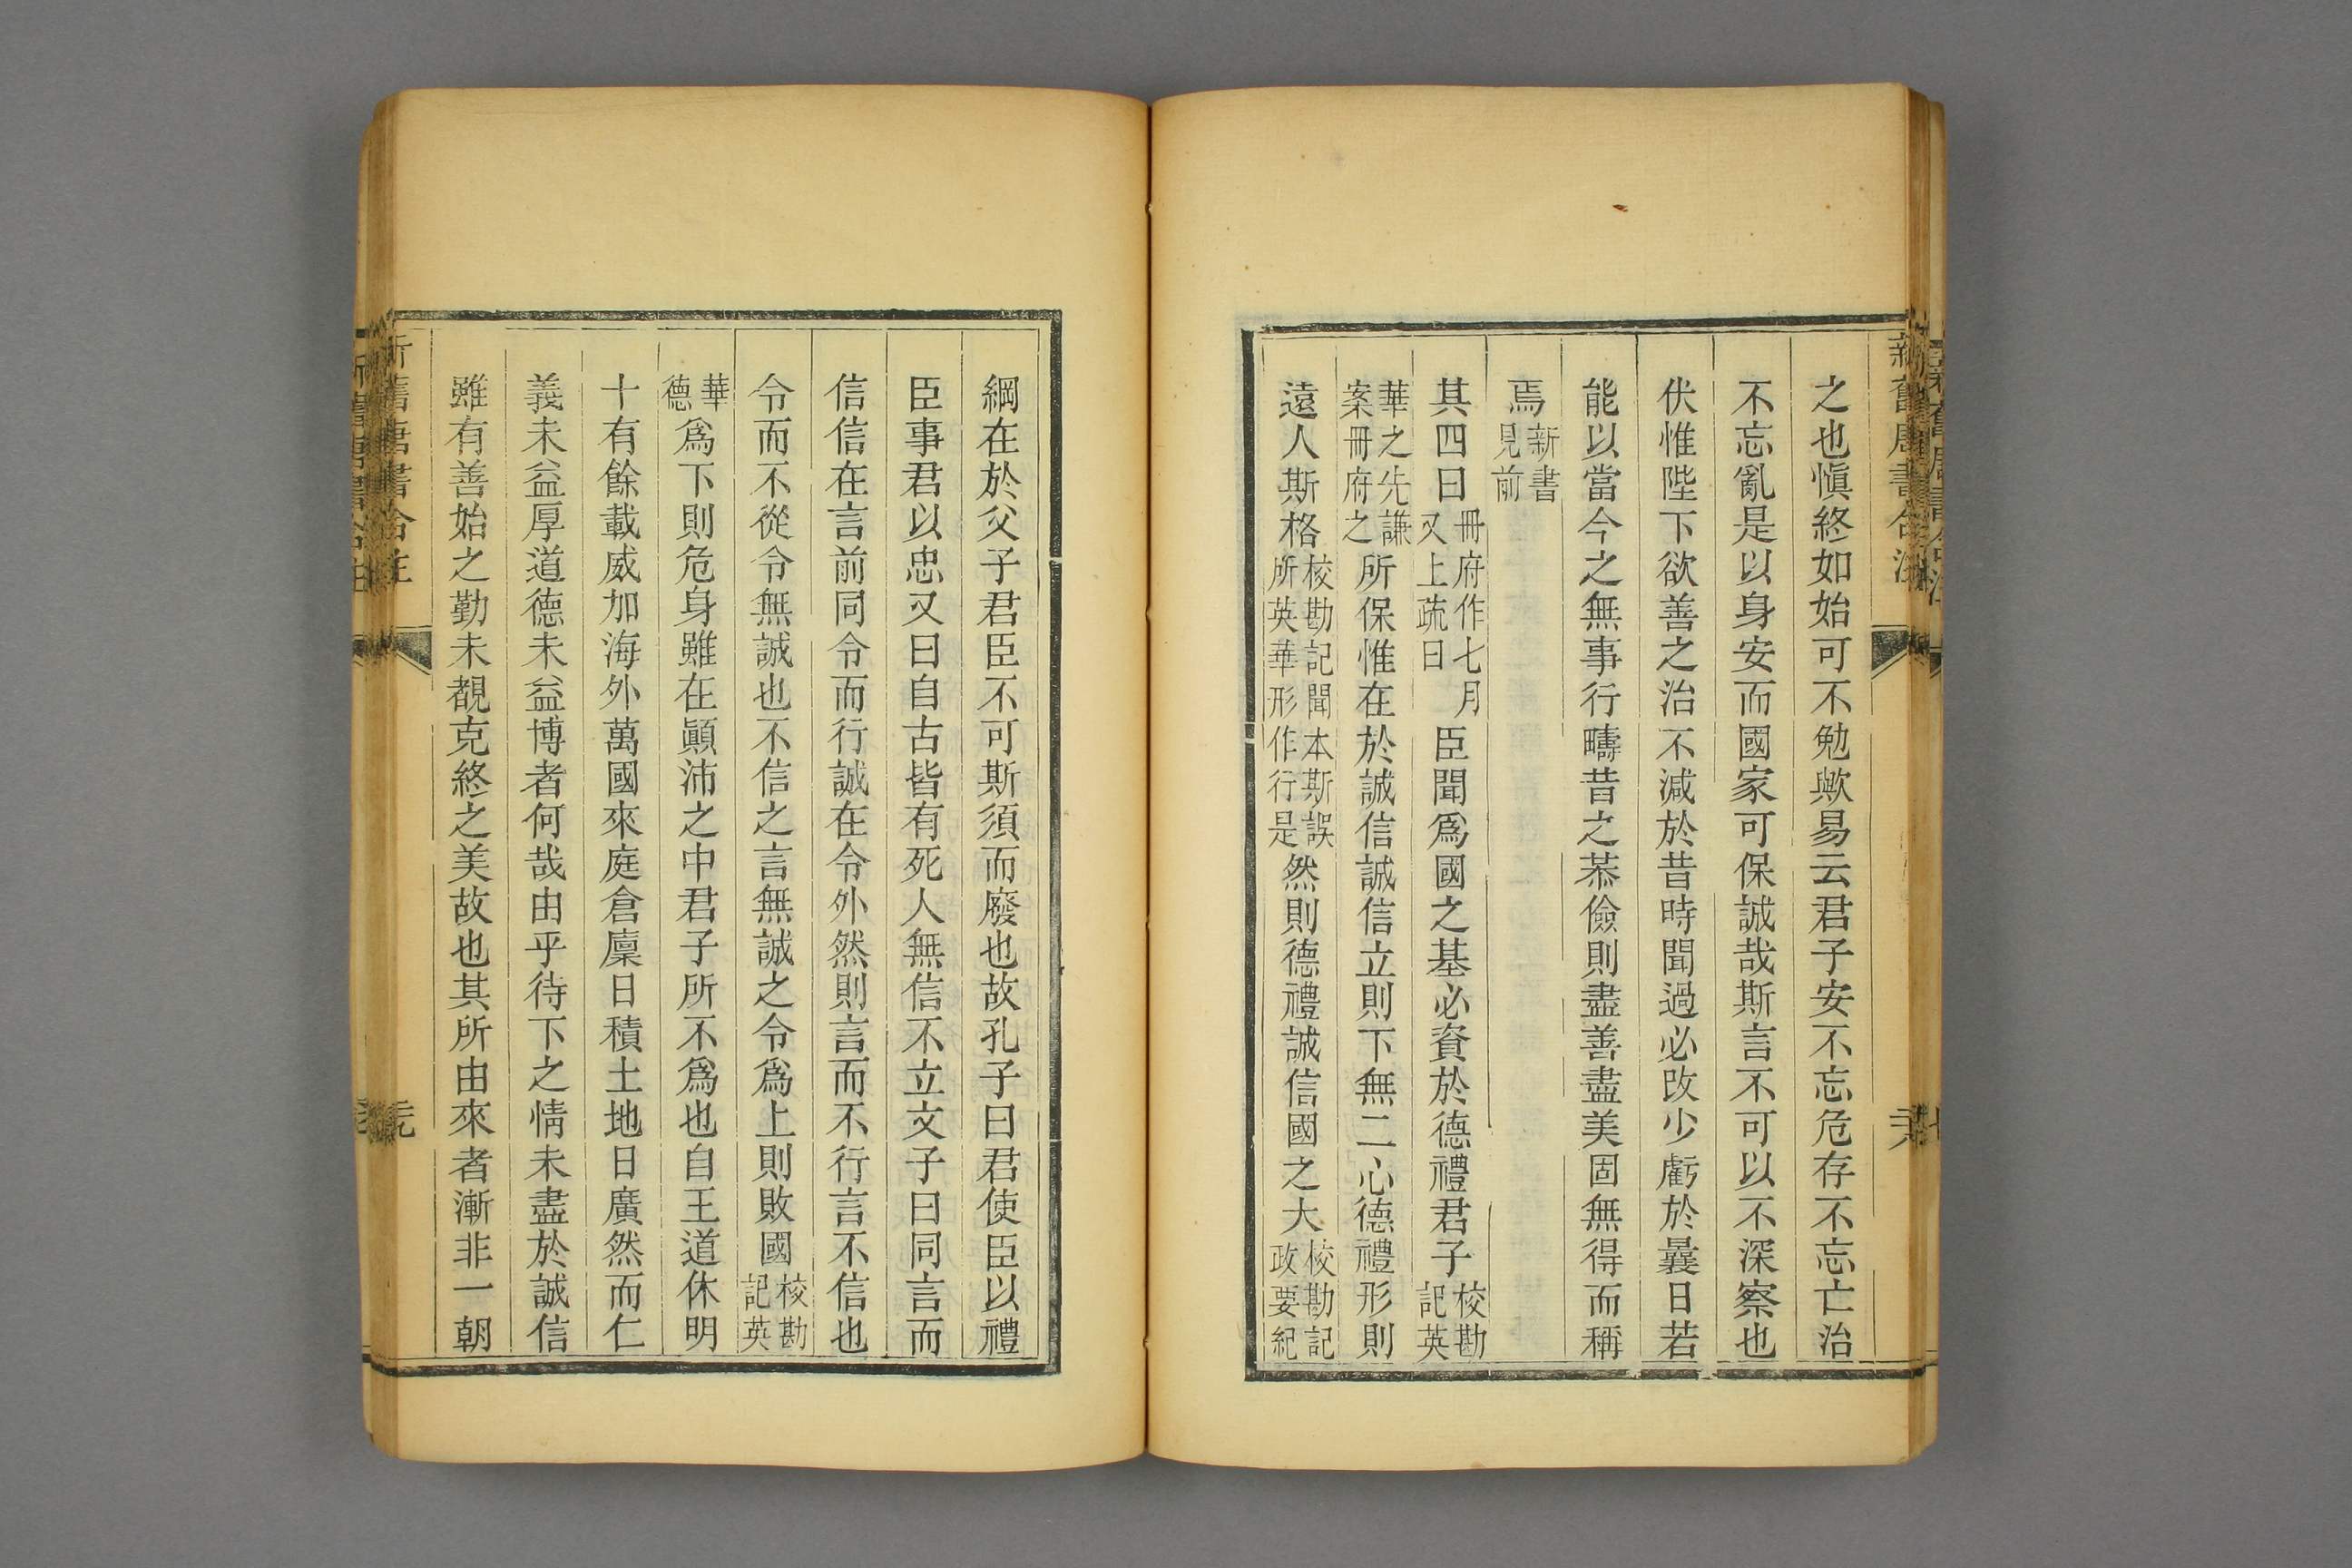 之也愼終如始可不勉歟易云君子安不忘危存不忘亡治
不忘亂是以身安而國家可保誠哉斯言不可以不深察也
伏惟陛下欲善之治不減於昔時聞過必改少虧於曩日若
能以當今之無事行疇昔之恭儉則盡善盡美固無得而稱
焉新書見前
其四曰冊府作七月又上疏曰臣聞爲國之基必資於德禮君子校勘記英
華之先謙案冊府之所保惟在於誠信誠信立則下無二心德禮形則
遠人斯格校勘記聞本斯誤所英華形作行是然則德禮誠信國之大校勘記政要紀
新舊唐書合注
綱在於父子君臣不可斯須而廢也故孔子曰君使臣以禮
臣事君以忠又曰自古皆有死人無信不立文子曰同言而
信信在言前同令而行誠在令外然則言而不行言不信也
令而不從令無誠也不信之言無誠之令爲上則敗國校勘記英
華德爲下則危身雖在顚沛之中君子所不爲也自王道休明
十有餘載威加海外萬國來庭倉廩日積土地日廣然而仁
義未益厚道德未益博者何哉由乎待下之情未盡於誠信
雖有善始之勤未覩克終之美故也其所由來者漸非一朝
新舊唐書合注